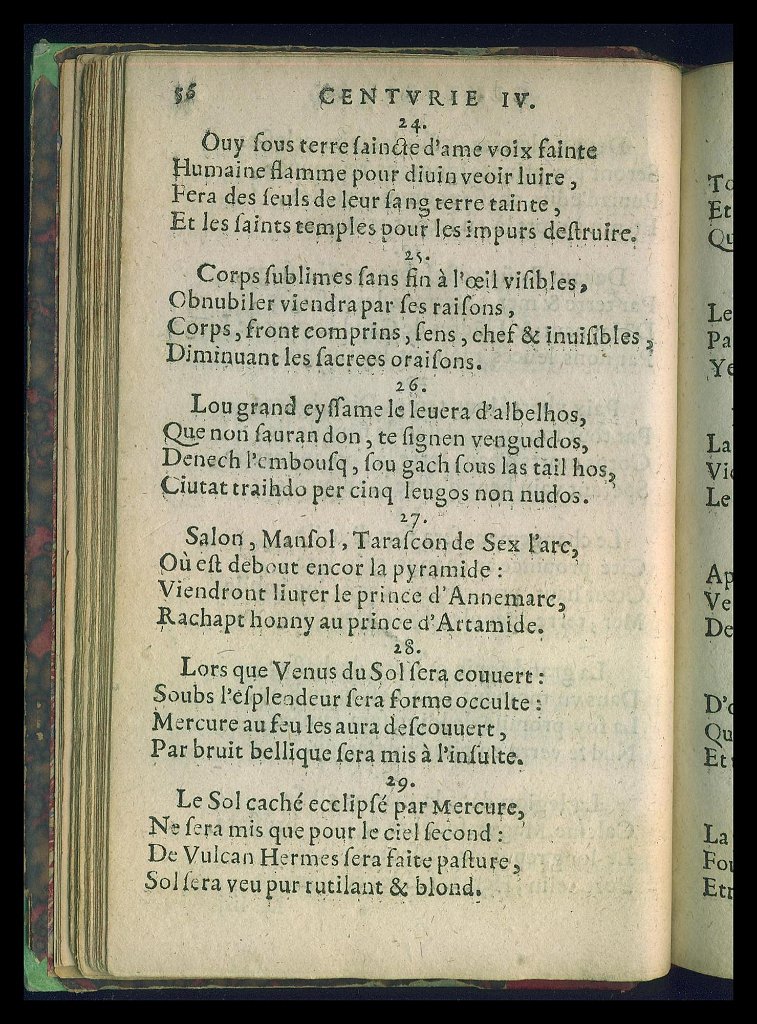 56 CENTVRIE IV.
24.
Ouy ſous terre ſaincte d'ame voix fainte
Humaine flamme pour diuin veoir luire,
Fera des ſeuls de leur ſang terre tainte,
Et les ſaints temples pour les impurs deſtruire.
25.
Corps ſublimes ſans fin à l'œil viſibles,
Obnubiler viendra par ſes raiſons,
Corps, front comprins, ſens, chef & inuiſibles,
Diminuant les ſacrees oraiſons.
26.
Lou grand eyſſame le leuera d'albelhos,
Que non ſauran don, te ſignen venguddos,
Denech l'embouſq, ſou gach ſous las tail hos,
Ciutat traihdo per cinq leugos non nudos.
27.
Salon, Manſol, Taraſcon de Sex l'arc,
Où eſt debout encor la pyramide:
Viendront liurer le prince d'Annemarc,
Rachapt honny au prince d'Artamide.
28.
Lors que Venus du Sol ſera couuert:
Soubs l'eſplendeur ſera forme occulte:
Mercure au feu les aura deſcouuert,
Par bruit bellique ſera mis à l'inſulte.
29.
Le Sol caché ecclipſé par Mercure,
Ne ſera mis que pour le ciel ſecond:
De Vulcan Hermes ſera faite paſture,
Sol ſera veu pur rutilant & blond.
Et
Le
Pa
La
Le
Ap
Ve
De
Et
La